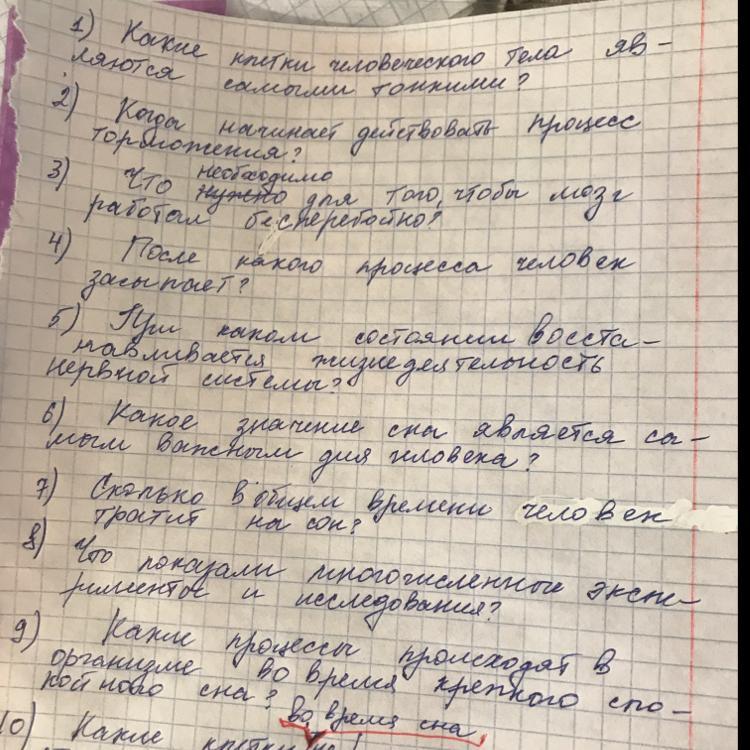 1) Какие клетки человеческого тела яв-
ляются самыми тонкими?
2) Когда начинает действовать процесс
торможения?
необходимо
3) Что нужно для того, чтобы мозг
работал бесперебойно?
4) После какого процесса человек
засыпает?
5) При каком состоянии восста-
навливается жизнедеятельность
нервной системы?
6) Какое значение сна является са-
мым важным для человека?
7) Сколько в общем времени человек
тратит на сон?
8) Что показали многочисленные экспе-
рименты и исследования?
9) Какие процессы происходят в
организме во время крепкого спо-
койного сна?
во время сна
10) Какие клетки